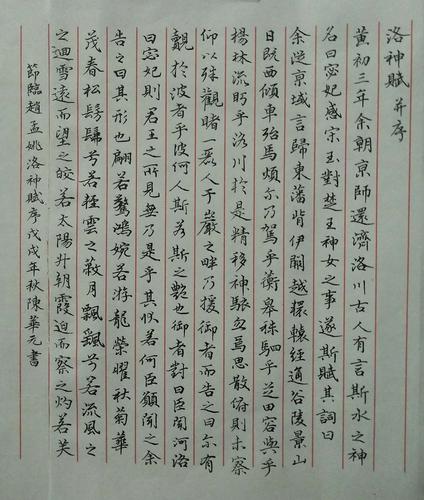 洛神賦 并序
黃初三年余朝京師還濟洛川古人有言斯水之神
名曰宓妃感宋玉對楚王神女之事遂斯賦其詞曰
余從京域言歸東藩背伊闕越轘轅經通谷陵景山
日既西傾車殆馬煩尔乃駕乎蘅皋秣駟乎芝田容與乎
楊林流眄乎洛川於是精移神駭忽焉思散俯則未察
仰以殊觀睹一麗人于巖之畔乃援御者而告之曰尔有
覿於彼者乎彼何人斯若斯之艷也御者對曰臣聞河洛
曰宓妃則君王之所見無乃是乎其狀若何臣願聞之余
告之曰其形也翩若驚鴻婉若游龍榮曜秋菊華
茂春松髣髴兮若輕雲之蔽月飄飄兮若流風之
之迴雪遠而望之皎若太陽升朝霞迫而察之灼若芙
節臨趙孟姚洛神賦序戊戌年秋陳華元書